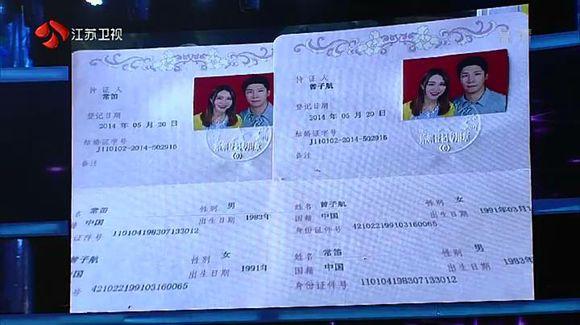 江苏卫视
持证人
常笛
登记日期
2014 年 05 月 20 日
结婚证字号
J110102-2014-502916
备注
姓名 常笛 性别 男
国籍 中国 出生日期 1983年
证件号 110104198307133012
曾子航 性别 女
中国 出生日期 1991年
号 421022199103160065
持证人
曾子航
登记日期
2014 年 05 月 20 日
结婚证字号
J110102-2014-502916
备注
姓名 曾子航 性别 女
国籍 中国 出生日期 1991年03月
身份证件号 421022199103160065
姓名 常笛 性别 男
国籍 中国 出生日期 1983年
身份证件号 110104198307133012